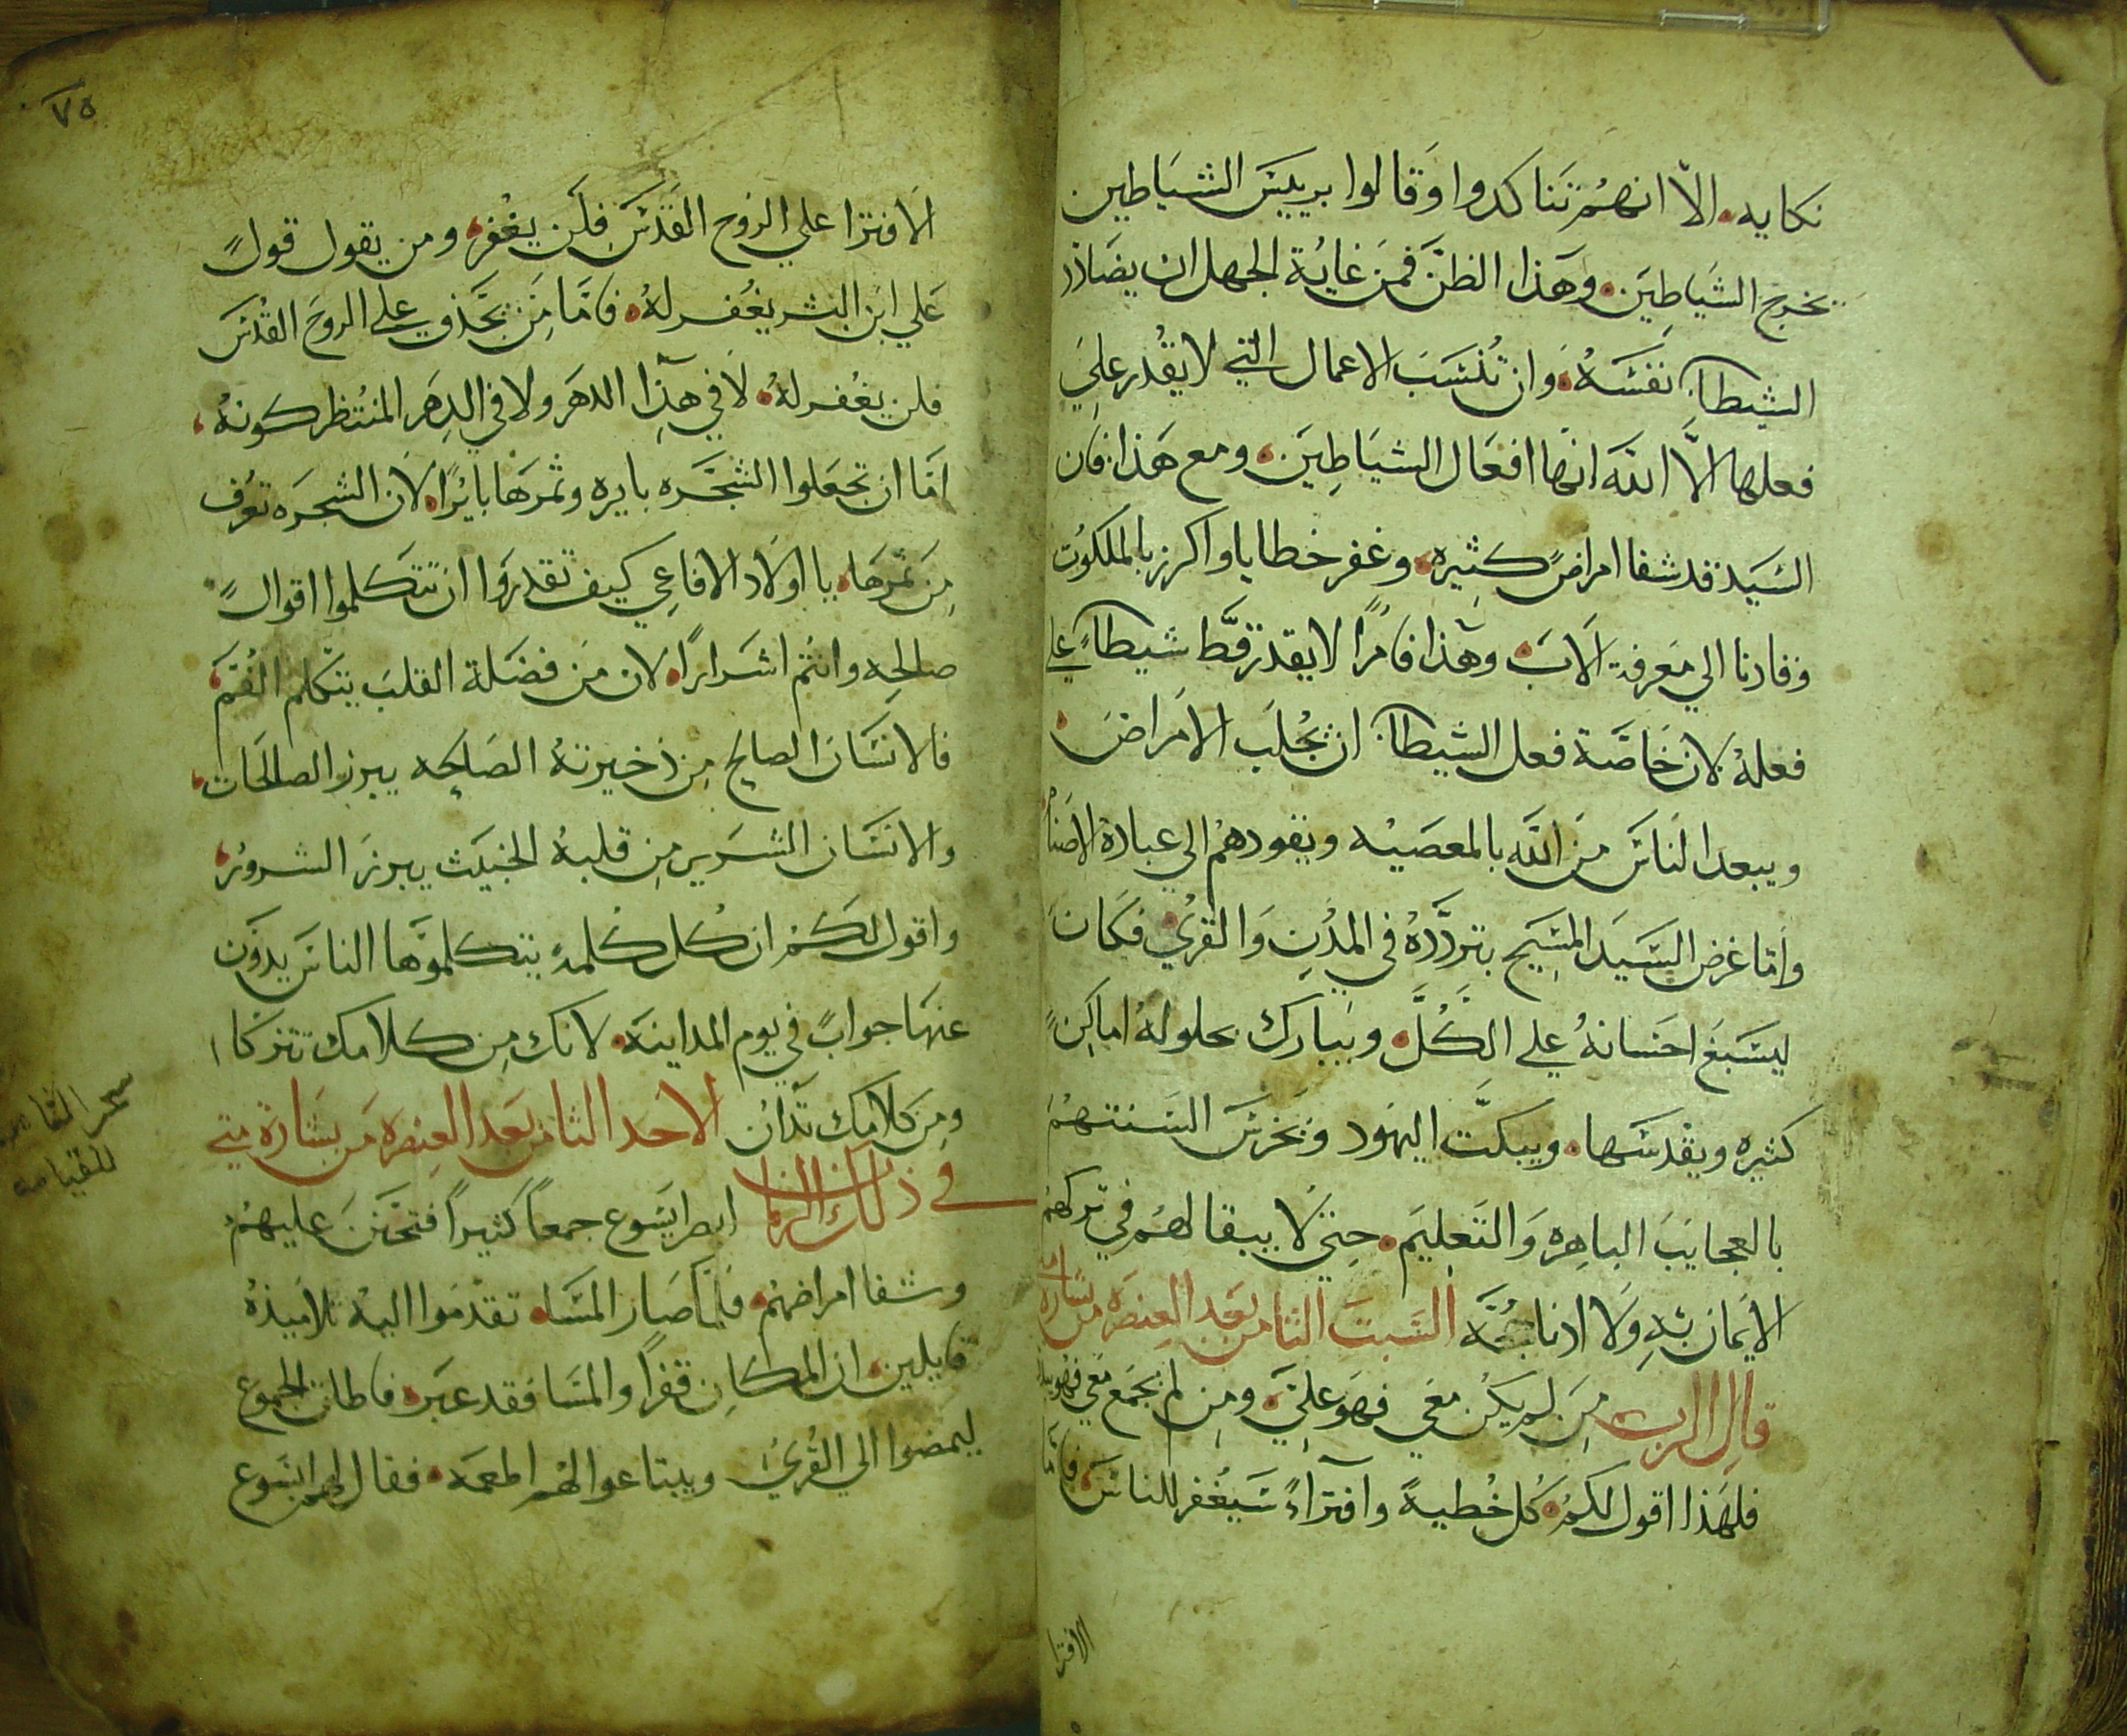 نكايه. الاّ انهُم تناكدوا وَقالوا برييسَ الشياطين
يخرج الشياطين. وهَذا الظنّ فمن غايُة الجهل ان يضادد
الشيطان نفسَهُ. وان تُنسَبَ الاعمال التي لا يقدر علي
فعلها الاَّ الله انها افعَال الشيَاطِين. ومع هَذا فان
السَيد قد شفا امراضً كثيره. وغفر خطايا واكرز بالملكوت
وقادنا الي مَعرفة الابَ. وهَذا فامرًا لا يقدر قطَّ شيطانً علي
فعلهُ لان خاصَّة فعل الشيطان ان يجلبَ الامراضَ.
ويبعد الناسَ مِن الله بالمعصَيه ويقودهمُ الي عبادة الاصنام
وامّا غرض السَيدَ المسِيح بتردَّدهُ في المدُنِ وَالقري. فكان
ليسَبغَ احسَانهُ علي الكُلّ. ويبارك بحلولهُ اماكِنً
كثيره ويقدسَها. ويبكّت اليهَود ويخرسَ السَنتهمُ
بالعجايبَ الباهِره وَالتعليمَ. حِتي لا يبقا لهَم في تركهمُ
الايمان بهِ وَلا ادنا حُجَّه السَبتَ الثامن بعَد العِنصَره من بشارة متي
قال الرب مِنَ لم يكن معَي فهوَ علِيّ. ومِن لم يجمَع معَي فهو يبدد
فلهَذا اقول لكمُ. كل خُطيةً وافتراءً سَيُغفر للناسَ. فامّا
الافترا
٧٥
الافترا علي الروح القدسَ فلَن يغُفر. ومن يقول قولً
عَلي ابن البشر يغُفر لهُ. فامّا مِن يجَّدف علي الروحَ القُدسَ
فلن يغُفر لهُ. لا في هَذا الدهَر ولا في الدِهَر المنتُظر كونهُ.
امّا ان تجعَلوا الشجَره بايره وثمرهَا بايرًا. لان الشجَره تعرُف
مِن ثمرهَا. يا اولاد الافاعِي كيف تقدرَوا ان تتَكلموا اقوالً
صالحِه وانتُم اشَرارًا. لان مِن فضَلة القلبَ يتكلم الفُمَّ.
فالانسَانَ الصالح مِن ذخيرتهُ الصَالحِه يبرز الصالحَات.
والانسَان الشرير مِن قلبهُ الخبيث يبرزَ الشرورُ.
واقول لكمُ ان كُل كُلمهِ يتكلموَّها الناسَ يدوَّن
عنهَا جوابً في يوم المداينه. لانك مِن كلامك تتزكا
ومِن كلامك تدانُ الاحد الثامن بعَد العِنصره مَن بشَارة متي
في ذلك الزمان ابصر ايسَوع جمعاً كثيراً فتحنّنَ عليهمُ
وشفا امراضهمُ. فلمّا صَار المسَاه تقدمَوا اليهُ تلامَيذهُ
قايلين. ان المكان قفراً والمسَا فقد عبَر. فاطلق الجموع
ليمضوا الي القُريُ ويبتاعوا لهُم اطعمَه. فقال لهم ايسَوع
سحر الثامن
للقيامه